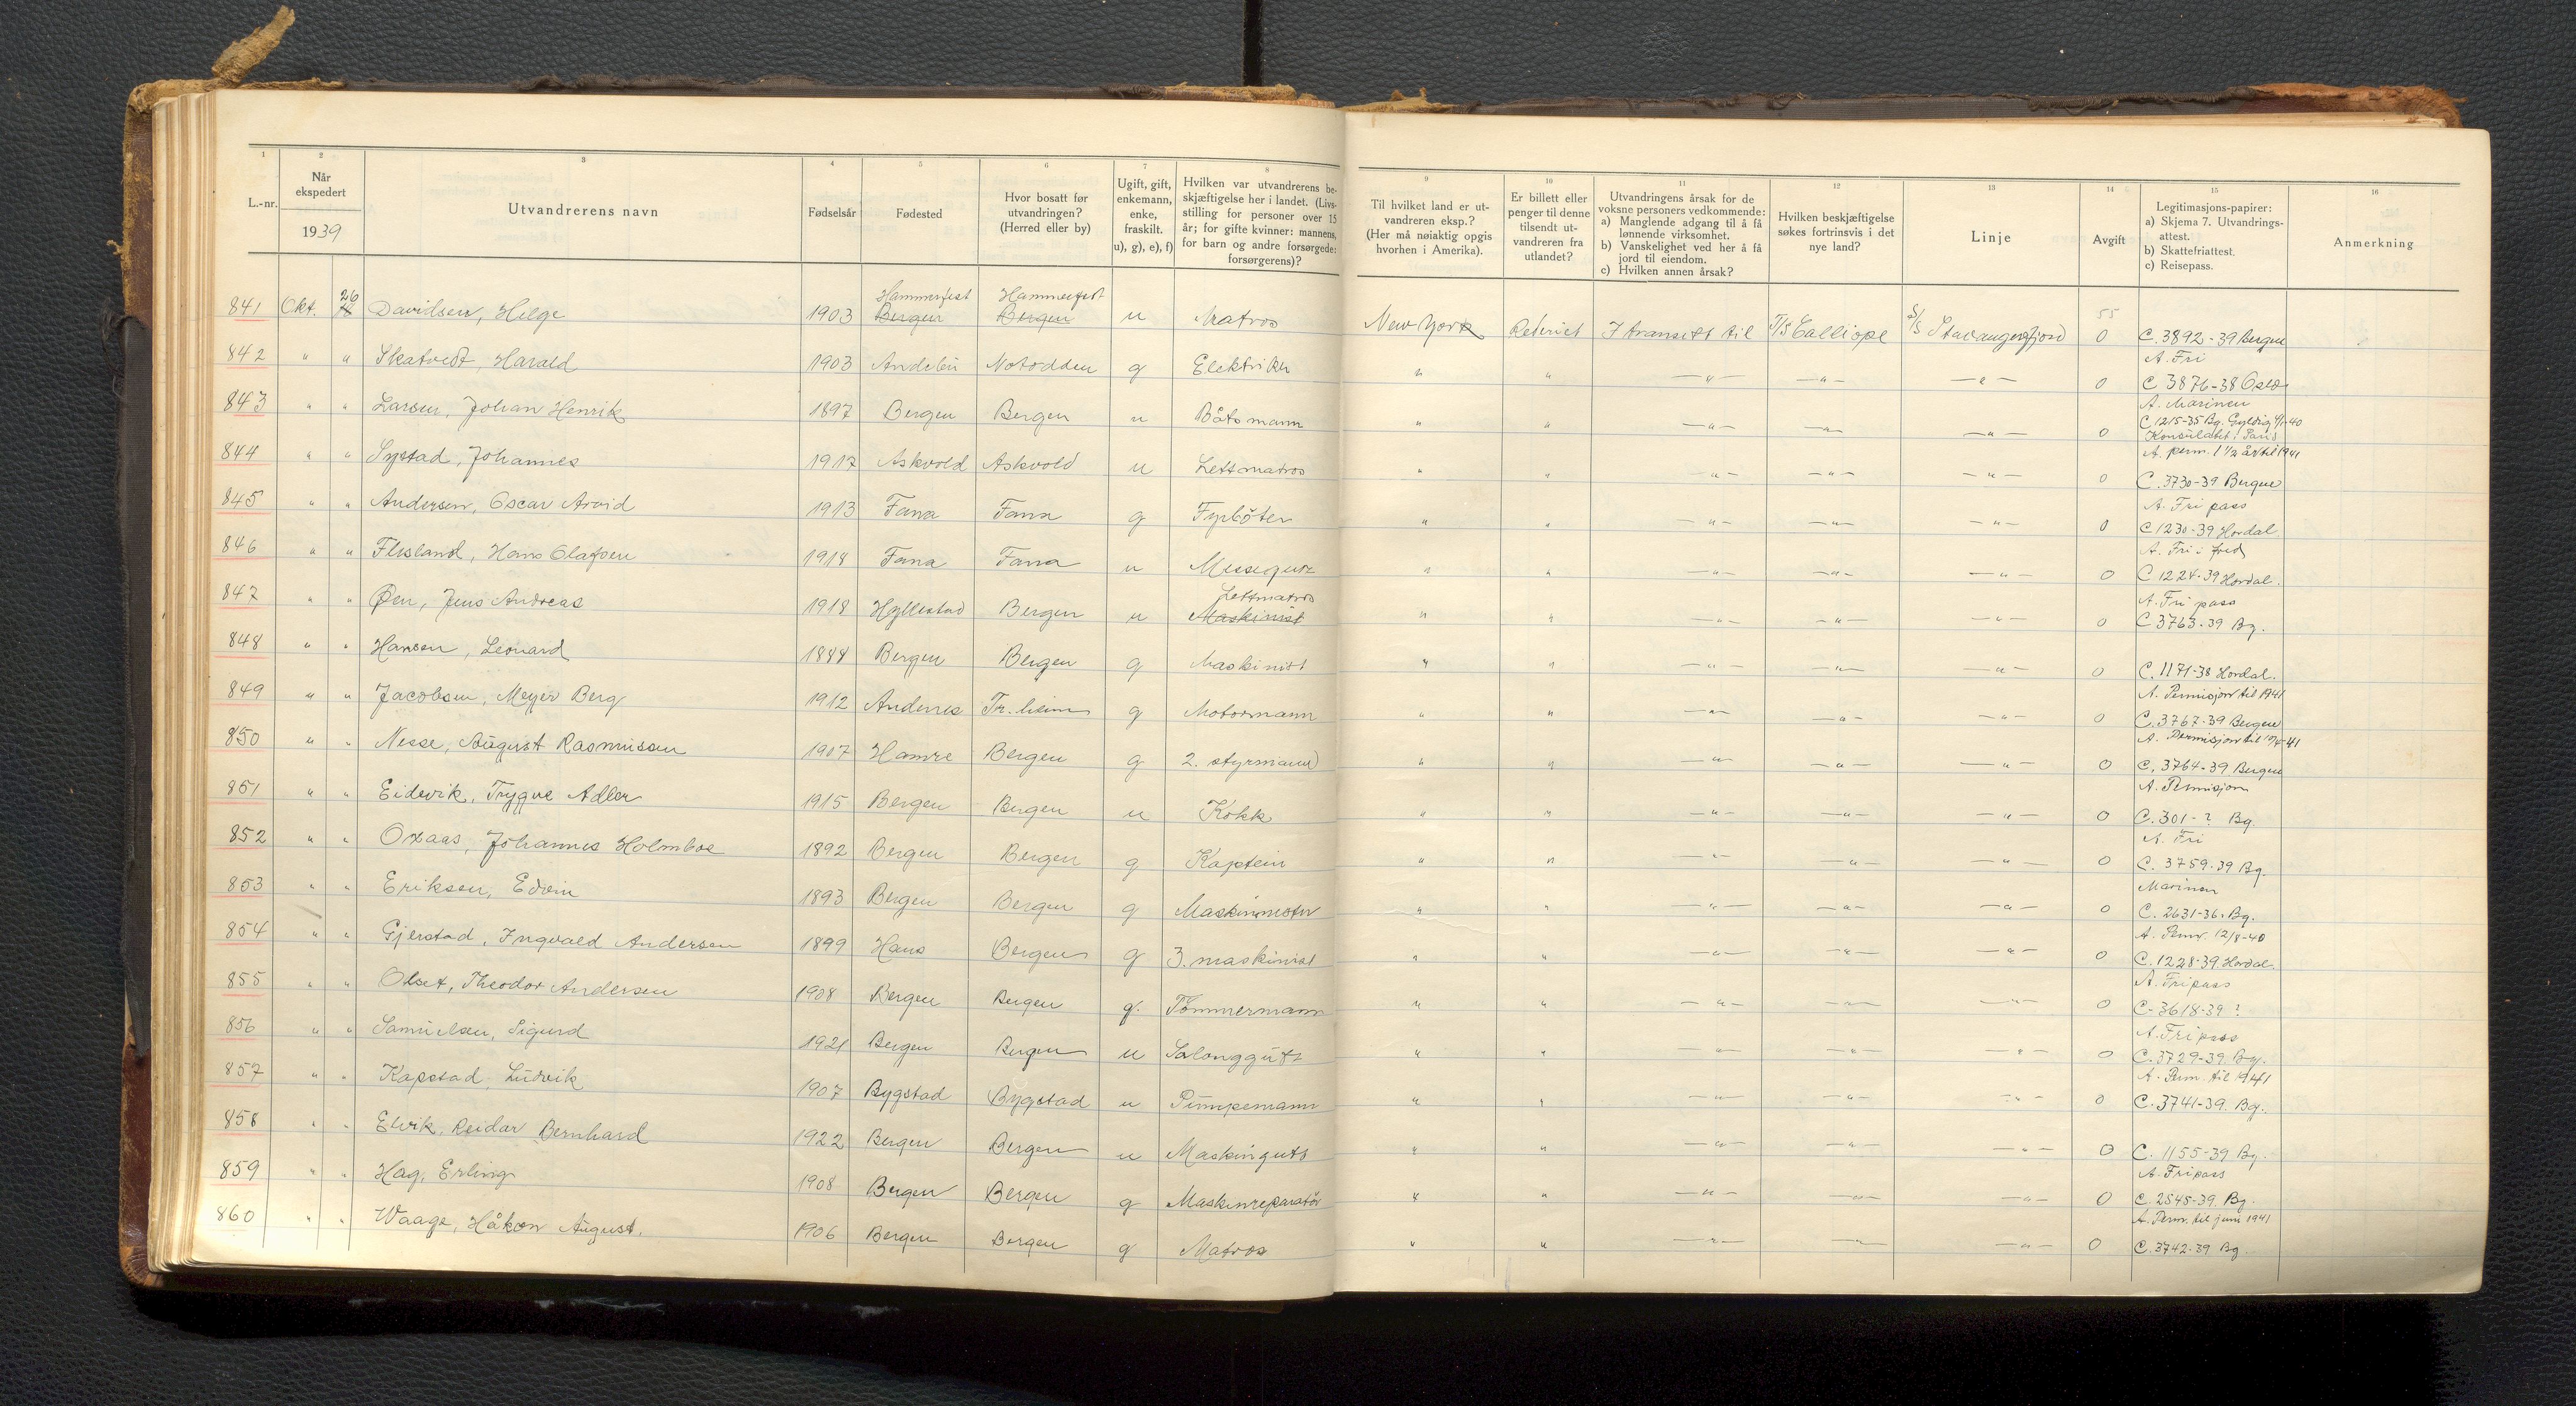 1 2 3 4 5 6 7 8 9 10 11 12 13 14 15 16
L.-nr. | Når ekspedert 1939 | Utvandrerens navn | Fødselsår | Fødested | Hvor bosatt før utvandringen? (Herred eller by) | Ugift, gift, enkemann, enke, fraskilt. u), g), e), f) | Hvilken var utvandrerens beskjæftigelse her i landet. (Livsstilling for personer over 15 år; for gifte kvinner: mannens, for barn og andre forsørgede: forsørgerens)? | Til hvilket land er utvandreren eksp.? (Her må nøiaktig opgis hvorhen i Amerika). | Er billett eller penger til denne tilsendt utvandreren fra utlandet? | Utvandringens årsak for de voksne personers vedkommende: a) Manglende adgang til å få lønnende virksomhet. b) Vanskelighet ved her å få jord til eiendom. c) Hvilken annen årsak? | Hvilken beskjæftigelse søkes fortrinsvis i det nye land? | Linje | Avgift | Legitimasjons-papirer: a) Skjema 7. Utvandringsattest. b) Skattefriattest. c) Reisepass. | Anmerkning
841 Okt. 26 Davidsen, Helge 1903 Hammerfest Bergen Hammerfest Bergen u Matros New York Rederiet I transitt til T/S Calliope S/S Stavangerfjord 55 0 C. 3892-39 Bergen
842 " " Skatvedt, Harald 1903 Andebu Notodden g Elektriker " " —"— —"— —"— 0 A. Fri C 3876-38 Oslo
843 " " Larsen, Johan Henrik 1897 Bergen Bergen u Båtsmann " " —"— —"— —"— 0 A. Marinen C. 1215-35 Bg. Gyldig 4/1-40 Konsulatet i Paris
844 " " Systad, Johannes 1917 Askvold Askvold u Lettmatros " " —"— —"— —"— 0 A. perm. 1 1/2 år til 1941 C. 3730-39 Bergen
845 " " Andersen, Oscar Arvid 1913 Fana Fana g Fyrbøter " " —"— —"— —"— 0 A. Fri pass C 1230-39 Hordal
846 " " Flesland, Hans Olafsen 1918 Fana Fana u Messegutt " " —"— —"— —"— 0 A. Fri i fred C 1224-39 Hordal.
847 " " Øen, Jens Andreas 1918 Hyllestad Bergen u Lettmatros Maskinist " " —"— —"— —"— 0 A. Fri pass C 3763-39 Bg.
848 " " Hansen, Leonard 1888 Bergen Bergen g Maskinist " " —"— —"— —"— 0 C. 1171-38 Hordal.
849 " " Jacobsen, Meyer Berg 1912 Andenes Tr.heim g Motormann " " —"— —"— —"— 0 A. Permisjon til 1941 C. 3767-39 Bergen
850 " " Nesse, August Rasmussen 1907 Hamre Bergen g 2. styrmann " " —"— —"— —"— 0 A. Permisjon til 10/4-41 C. 3764-39 Bergen
851 " " Eidevik, Trygve Adler 1915 Bergen Bergen u Kokk " " —"— —"— —"— 0 A. Permisjon C. 301-? Bg.
852 " " Oxaas, Johannes Holmboe 1892 Bergen Bergen g Kaptein " " —"— —"— —"— 0 A. Fri C. 3759-39 Bg.
853 " " Eriksen, Edvin 1893 Bergen Bergen g Maskinmester " " —"— —"— —"— 0 Marinen C. 2631-36. Bg.
854 " " Gjerstad, Ingvald Andersen 1899 Haus Bergen g 3. maskinist " " —"— —"— —"— 0 A. Perm. 12/8-40 C. 1228-39 Hordal.
855 " " Olset, Theodor Andersen 1908 Bergen Bergen g. Tömmermann " " —"— —"— —"— 0 A. Fripass C-3618-39 ?
856 " " Samuelsen, Sigurd 1921 Bergen Bergen u Salonggutt " " —"— —"— —"— 0 A. Fripass C-3729-39 Bg.
857 " " Kapstad, Ludvik 1907 Bygstad Bygstad u Pumpemann " " —"— —"— —"— 0 A. Perm. til 1941 C. 3741-39. Bg.
858 " " Elvik, Reidar Bernhard 1922 Bergen Bergen u Maskingutt " " —"— —"— —"— 0 C. 1155-39 Bg.
859 " " Hag, Erling 1908 Bergen Bergen g Maskinreparatör " " —"— —"— —"— 0 A. Fripass C. 2545-39. Bg.
860 " " Waage, Håkon August. 1906 Bergen Bergen g Matros " " —"— —"— —"— 0 A. Perm. til juni 1941 C. 3742-39 Bg.